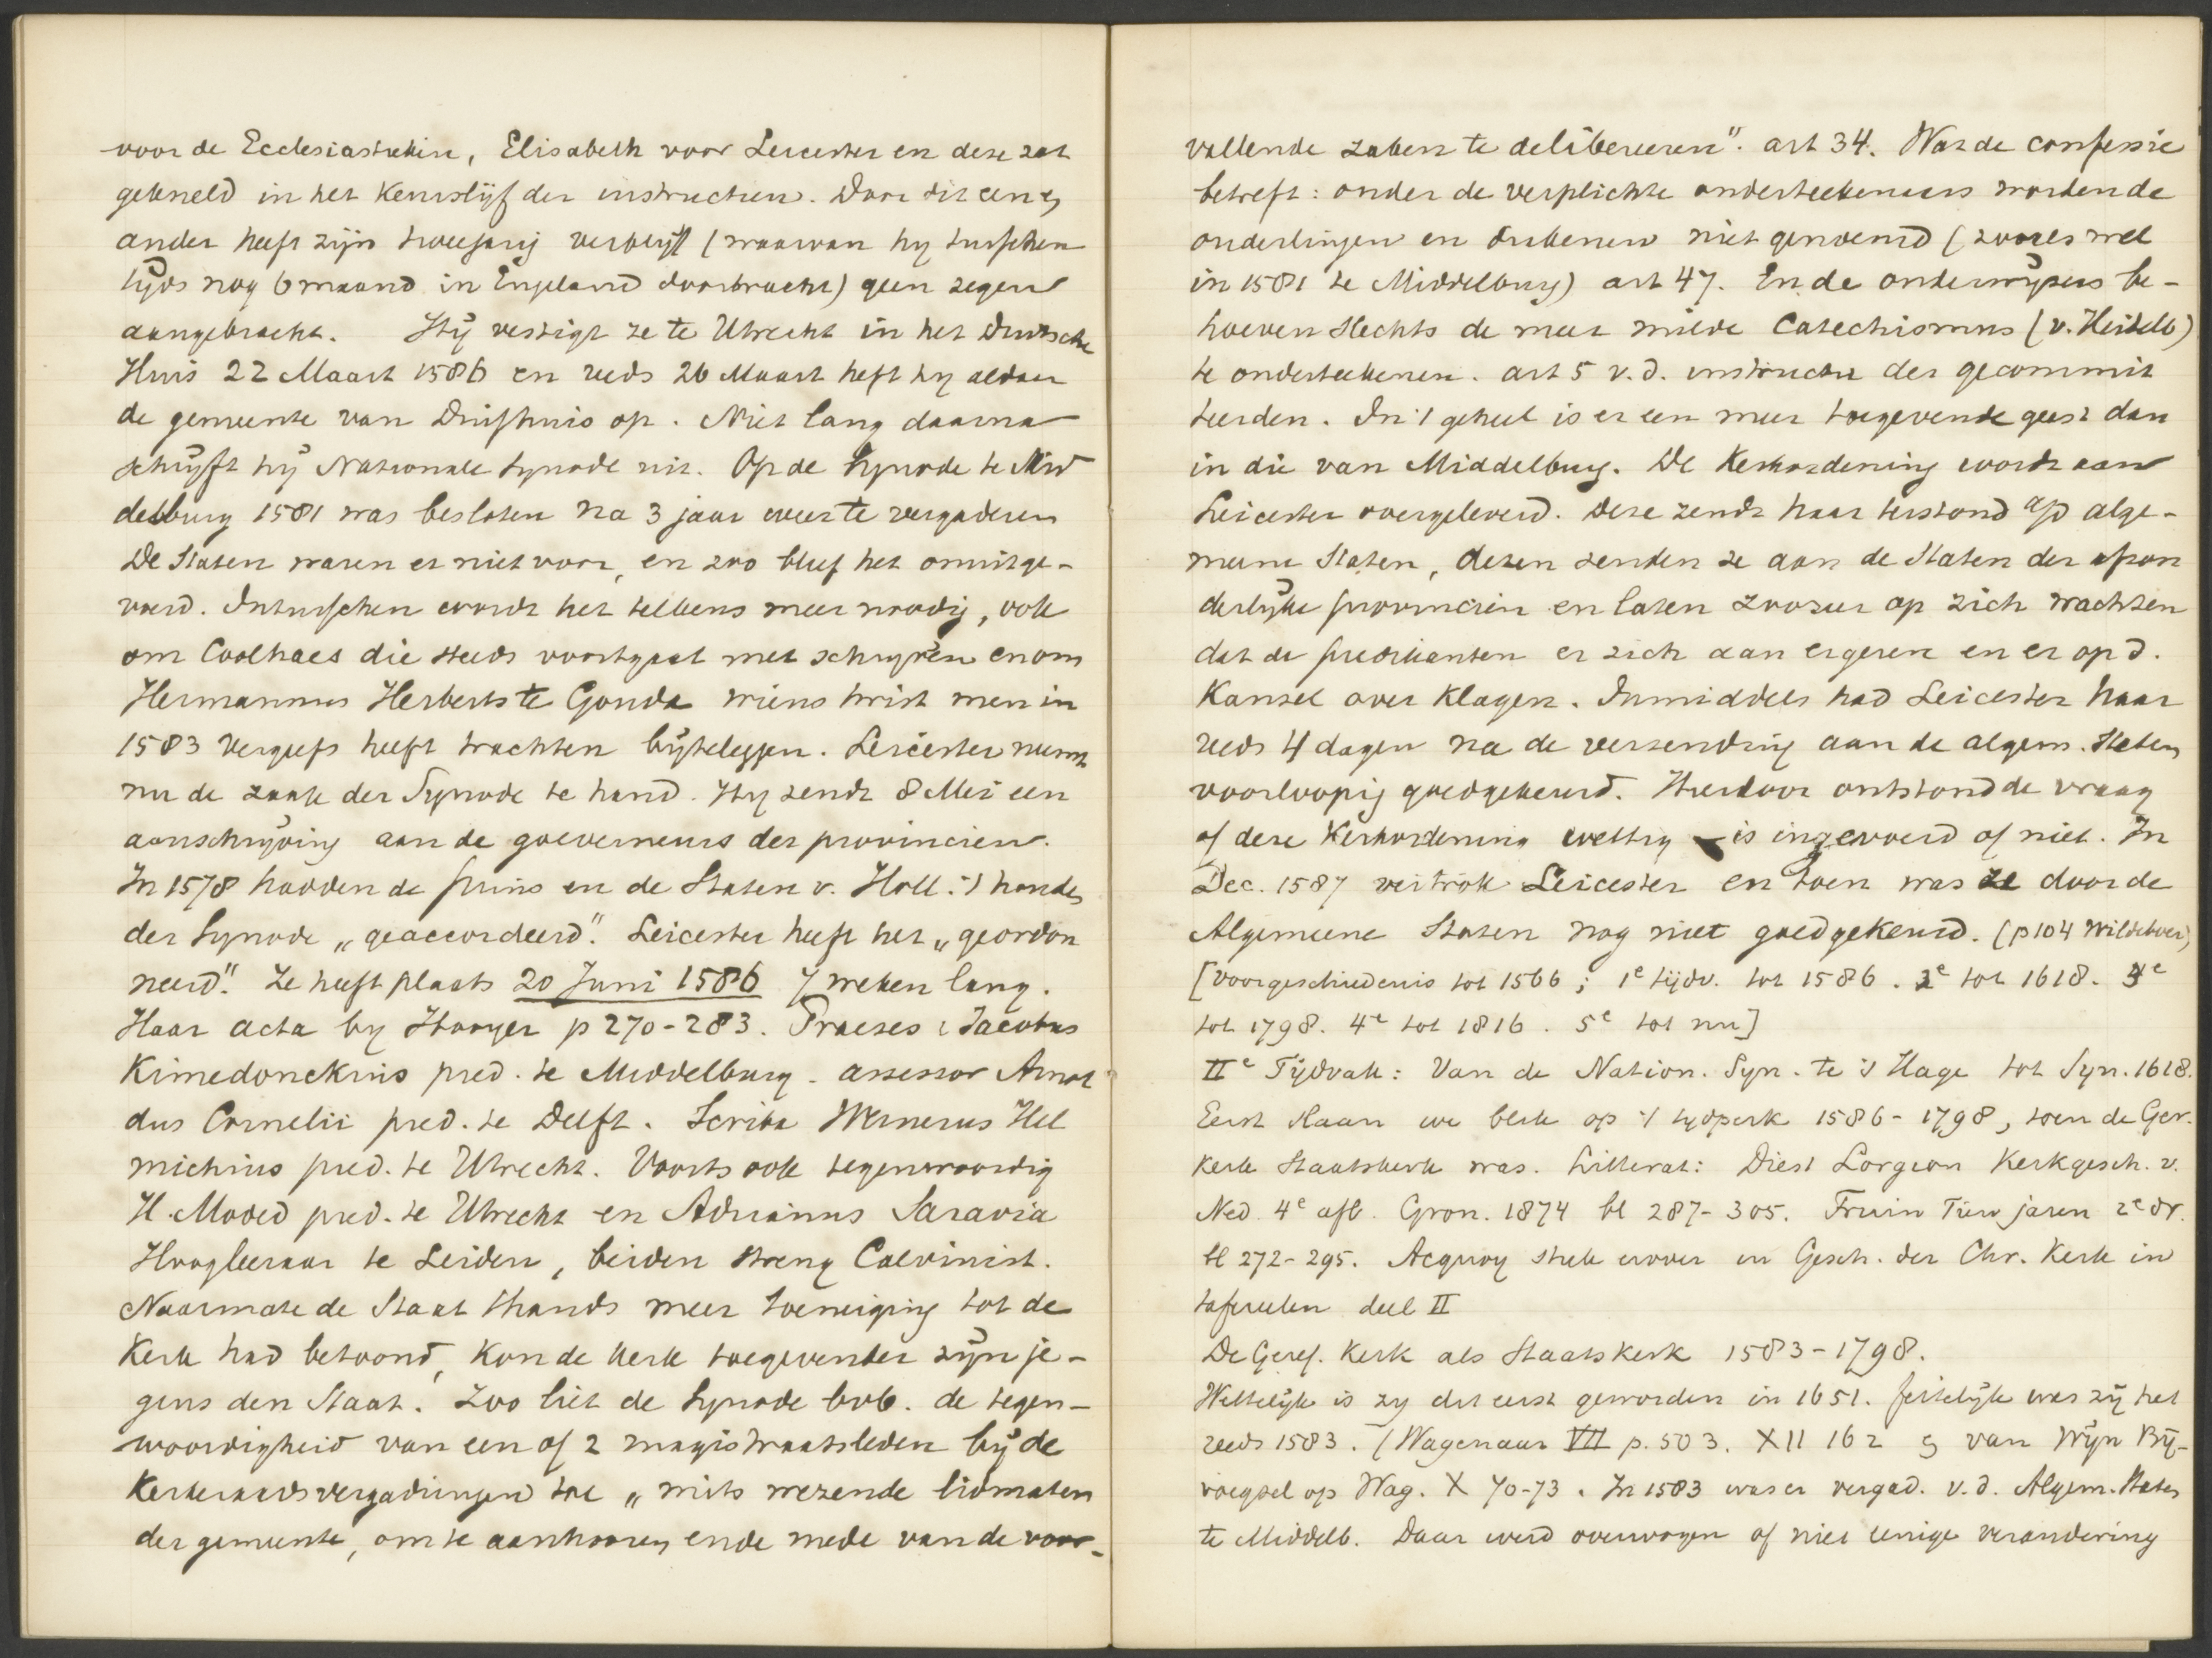 voor de Ecclesiastieken, Elisabeth voor Leicester en deze zat
gekneld in het Keurslijf der instructien. Door dit een &
ander heeft zijn tweejarig verblijf (waarvan hy tusschen
tijds nog 6 maand in Engeland doorbracht) geen zegen
aangebracht. Hij vestigt ze te Utrecht in het Duitsche
Huis 22 Maart 1586 en reeds 26 Maart heft hy aldaar
de gemeente van Duifhuis op. Niet lang daarna
schrijft hij Nationale Synode uit. Op de Synode te Mid
delburg 1581 was besloten na 3 jaar weer te vergaderen
De Staten waren er niet voor, en zoo bleef het onuitge-
voerd. Intusschen wordt het telkens meer noodig, ook
om Coolhaes die steeds voortgaat met schryven en om
Hermannus Herberts te Gouda wiens twist men in
1583 vergeefs heeft trachten bijteleggen. Leicester neemt
nu de zaak der Synode te hand. Hy zendt 8 Mei een
aanschrijving aan de goeverneurs der provincien.
In 1578 hadden de prins en de Staten v. Holl. 't houden
der Synode „geaccordeerd". Leicester heeft het „geordon
neerd". Ze heeft plaats 20 Juni 1586 7 weken lang.
Haar acta by Hooyer p 270-283. Praeses: Jacobus
Kimedonckius pred. te Middelburg. assessor Arnol
dus Cornelii pred. te Delft. Scriba Wernerus Hel
michius pred. te Utrecht. Voorts ook tegenwoordig
H. Moded pred. te Utrecht en Adrianus Saravia
Hoogleeraar te Leiden, beiden streng Calvinist.
Naarmate de Staat thands meer toeneiging tot de
Kerk had betoond, kon de kerk toegevender zijn je-
gens den Staat. Zoo liet de Synode bvb. de tegen-
woordigheid van een of 2 magistraatsleden bij de
Kerkeraadsvergaderingen toe „mits wezende lidmaten
der gemeente, om te aanhooren ende mede van de voor-
vallende zaken te delibereeren". art 34. Wat de confessie
betreft: onder de verplichte onderteekenaars worden de
onderlingen en diakenen niet genoemd (zooals wel
in 1581 te Middelburg) art 47. En de onderwijzers be-
hoeven slechts de meer milde Catechismus (v. Heidelb)
te onderteekenen. art 5 v. d. instructie der gecommit
teerden. In 't geheel is er een meer toegevende geest dan
in die van Middelburg. De Kerkordening wordt aan
Leicester overgeleverd. Deze zendt haar terstond a/d alge-
meene Staten, dezen zenden ze aan de Staten der afzon
derlijke provinciën en laten zoozeer op zich wachten
dat de predikanten er zich aan ergeren en er op d.
Kansel over klagen. Inmiddels had Leicester haar
reeds 4 dagen na de verzending aan de algem. Staten
voorloopig goedgekeurd. Hierdoor ontstond de vraag
of deze Kerkordening wettig is ingevoerd of niet. In
Dec. 1587 vertrok Leicester en toen was ze door de
Algemeene Staten nog niet goedgekeurd. (p 104 Wildeboer)
[voorgeschiedenis tot 1566; 1e tijdv. tot 1586. 2e tot 1618. 3e
tot 1798. 4e tot 1816. 5e tot nu]
IIe Tijdvak: Van de Nation. Syn. te 's Hage tot Syn. 1618.
Eerst slaan we blik op 't tydperk 1586-1798, toen de Ger.
kerk Staatskerk was. Litterat: Diest Lorgion Kerkgesch. v.
Ned. 4e afl. Gron. 1874 bl 287-305. Fruin Tien jaren 2e dr.
bl 272-295. Acquoy stuk erover in Gesch. der Chr. Kerk in
tafereelen deel II
De Geref. Kerk als Staatskerk 1583-1798.
Wettelijk is zy dit eerst geworden in 1651. feitelijk was zij het
reeds 1583. (Wagenaar VII p. 503. XII 162 & van Wijn Bij-
voegsel op Wag. X 70-73. In 1583 was er vergad. v. d. Algem. Staten
te Middelb. Daar werd overwogen of niet eenige verandering